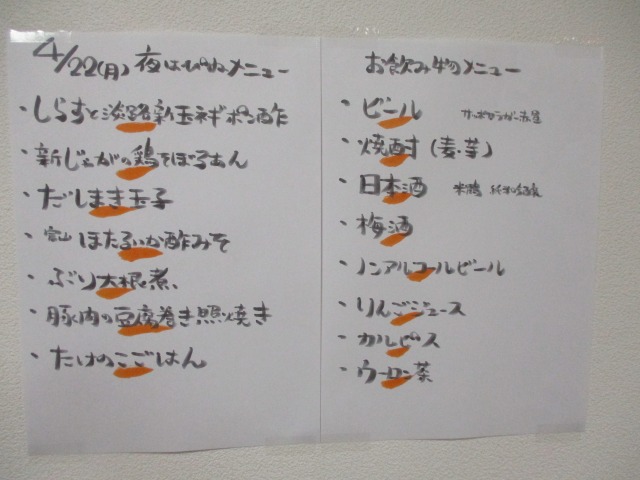 4/22(月) 夜はぴねメニュー
・しらすと淡路新玉ネギポン酢
・新じゃがの鶏そぼろあん
・だしまき玉子
・富山ほたるいか酢みそ
・ぶり大根煮
・豚肉の豆腐巻き照焼き
・たけのこごはん
お飲み物メニュー
・ビール サッポロラガー赤星
・焼酎(麦・芋)
・日本酒
・梅酒
・ノンアルコールビール
・りんごジュース
・カルピス
・ウーロン茶